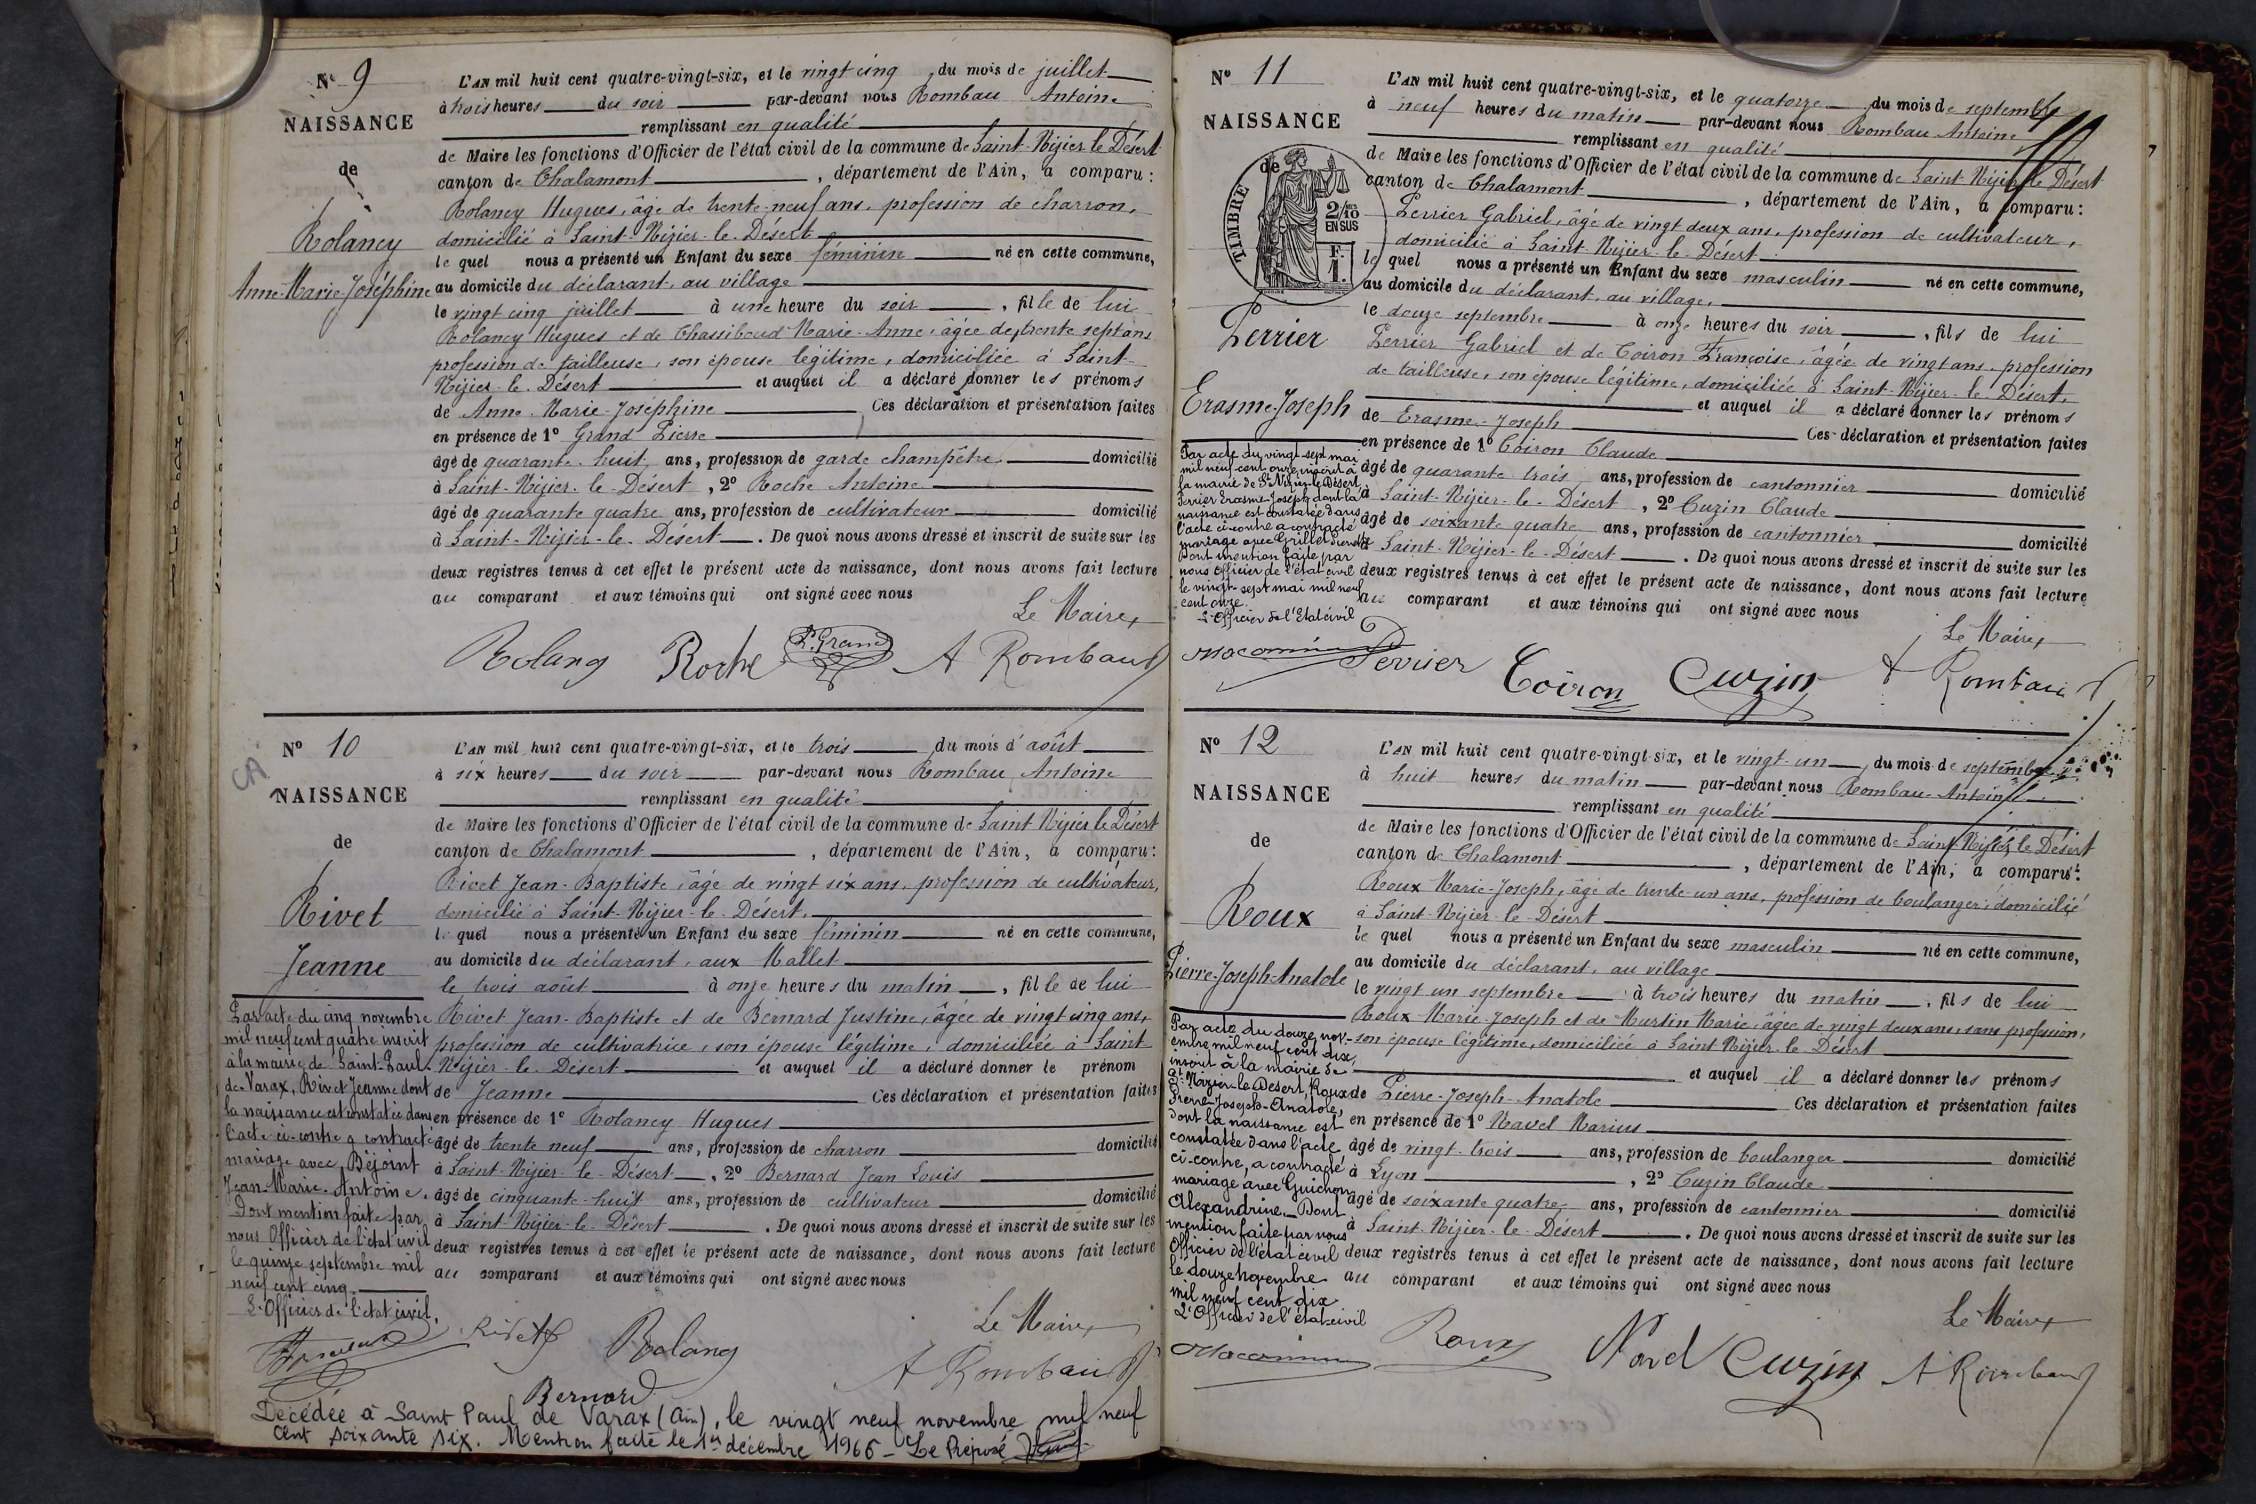 Nº 9
NAISSANCE
de
Rolancy
Anne-Marie-Joséphine
L'AN mil huit cent quatre-vingt-six, et le vingt cinq du mois de juillet
à trois heures du soir par-devant nous Rombau Antoine
remplissant en qualité
de Maire les fonctions d'Officier de l'état civil de la commune de Saint-Nizier le Désert
canton de Chalamont, département de l'Ain, a comparu :
Rolancy Hugues, âgé de trente-neuf ans, profession de charron,
domicilié à Saint-Nizier-le-Désert
le quel nous a présenté un Enfant du sexe féminin né en cette commune,
au domicile du déclarant, au village
le vingt cinq juillet à une heure du soir, fille de lui
Rolancy Hugues et de Chassiboud Marie-Anne, âgée de trente sept ans
profession de tailleuse, son épouse légitime, domiciliée à Saint-
Nizier-le-Désert et auquel il a déclaré donner les prénoms
de Anne-Marie-Joséphine Ces déclaration et présentation faites
en présence de 1º Grand Pierre
âgé de quarante-huit ans, profession de garde champêtre domicilié
à Saint-Nizier-le-Désert, 2º Roche Antoine
âgé de quarante quatre ans, profession de cultivateur domicilié
à Saint-Nizier-le-Désert. De quoi nous avons dressé et inscrit de suite sur les
deux registres tenus à cet effet le présent acte de naissance, dont nous avons fait lecture
au comparant et aux témoins qui ont signé avec nous
Le Maire,
Rolancy Roche P. Grand A Rombau
Nº 10
CA
NAISSANCE
de
Rivet
Jeanne
L'AN mil huit cent quatre-vingt-six, et le trois du mois d'août
à six heures du soir par-devant nous Rombau Antoine
remplissant en qualité
de Maire les fonctions d'Officier de l'état civil de la commune de Saint Nizier le Désert
canton de Chalamont, département de l'Ain, a comparu :
Rivet Jean-Baptiste, âgé de vingt six ans, profession de cultivateur,
domicilié à Saint-Nizier-le-Désert,
le quel nous a présenté un Enfant du sexe féminin né en cette commune,
au domicile du déclarant, aux Mallet
le trois août à onze heures du matin, fille de lui
Rivet Jean-Baptiste et de Bernard Justine, âgée de vingt cinq ans,
profession de cultivatrice, son épouse légitime, domiciliée à Saint
Nizier-le-Désert et auquel il a déclaré donner le prénom
de Jeanne Ces déclaration et présentation faites
en présence de 1º Rolancy Hugues
âgé de trente neuf ans, profession de charron domicilié
à Saint-Nizier-le-Désert, 2º Bernard Jean Louis
âgé de cinquante-huit ans, profession de cultivateur domicilié
à Saint Nizier-le-Désert. De quoi nous avons dressé et inscrit de suite sur les
deux registres tenus à cet effet le présent acte de naissance, dont nous avons fait lecture
au comparant et aux témoins qui ont signé avec nous
Le Maire,
Par acte du cinq novembre
mil neuf cent quatre inscrit
à la mairie de Saint-Paul-
de-Varax, Rivet Jeanne dont
la naissance est constatée dans
l'acte ci-contre a contracté
mariage avec Béjoint
Jean-Marie-Antoine.
Dont mention faite par
nous Officier de l'état civil
le quinze septembre mil
neuf cent cinq.
L'Officier de l'état civil,
Rivet Rolancy A Rombau
Bernard
Décédée à Saint Paul de Varax (Ain), le vingt neuf novembre mil neuf
cent soixante six. Mention faite le 1er décembre 1966 - Le Préposé
Nº 11
NAISSANCE
de
TIMBRE
2/10 EN SUS
F.
1.
Perrier
Erasme-Joseph
L'AN mil huit cent quatre-vingt-six, et le quatorze du mois de septembre
à neuf heures du matin par-devant nous Rombau Antoine
remplissant en qualité
de Maire les fonctions d'Officier de l'état civil de la commune de Saint-Nizier le Désert
canton de Chalamont, département de l'Ain, a comparu :
Perrier Gabriel, âgé de vingt deux ans, profession de cultivateur,
domicilié à Saint-Nizier-le-Désert
le quel nous a présenté un Enfant du sexe masculin né en cette commune,
au domicile du déclarant, au village,
le douze septembre à onze heures du soir, fils de lui
Perrier Gabriel et de Coiron Françoise, âgée de vingt ans, profession
de tailleuse, son épouse légitime, domiciliée à Saint-Nizier-le-Désert,
et auquel il a déclaré donner les prénoms
de Erasme-Joseph Ces déclaration et présentation faites
en présence de 1º Coiron Claude
âgé de quarante trois ans, profession de cantonnier domicilié
à Saint-Nizier-le-Désert, 2º Cuzin Claude
âgé de soixante quatre ans, profession de cantonnier domicilié
à Saint-Nizier-le-Désert. De quoi nous avons dressé et inscrit de suite sur les
deux registres tenus à cet effet le présent acte de naissance, dont nous avons fait lecture
au comparant et aux témoins qui ont signé avec nous
Le Maire,
Par acte du vingt-sept mai
mil neuf cent onze, inscrit à
la mairie de St Nizier-le-Désert
Perrier Erasme-Joseph dont la
naissance est constatée dans
l'acte ci-contre a contracté
mariage avec Grillet
Dont mention faite par
nous Officier de l'état civil
le vingt-sept mai mil neuf
cent onze.
L'Officier de l'Etat civil
Perrier Coiron Cuzin A Rombau
Nº 12
NAISSANCE
de
Roux
Pierre-Joseph-Anatole
L'AN mil huit cent quatre-vingt-six, et le vingt-un du mois de septembre
à huit heures du matin par-devant nous Rombau Antoine
remplissant en qualité
de Maire les fonctions d'Officier de l'état civil de la commune de Saint-Nizier le Désert
canton de Chalamont, département de l'Ain, a comparu :
Roux Marie-Joseph, âgé de trente-un ans, profession de boulanger, domicilié
à Saint-Nizier-le-Désert
le quel nous a présenté un Enfant du sexe masculin né en cette commune,
au domicile du déclarant, au village
le vingt un septembre à trois heures du matin, fils de lui
Roux Marie-Joseph et de Martin Marie, âgée de vingt deux ans, sans profession,
son épouse légitime, domiciliée à Saint Nizier-le-Désert
et auquel il a déclaré donner les prénoms
de Pierre-Joseph-Anatole Ces déclaration et présentation faites
en présence de 1º Navel Marius
âgé de vingt-trois ans, profession de boulanger domicilié
à Lyon, 2º Cuzin Claude
âgé de soixante quatre ans, profession de cantonnier domicilié
à Saint-Nizier-le-Désert. De quoi nous avons dressé et inscrit de suite sur les
deux registres tenus à cet effet le présent acte de naissance, dont nous avons fait lecture
au comparant et aux témoins qui ont signé avec nous
Le Maire,
Par acte du douze nov-
embre mil neuf cent dix,
inscrit à la mairie de
St-Nizier-le-Désert, Roux
Pierre-Joseph-Anatole,
dont la naissance est
constatée dans l'acte
ci-contre, a contracté
mariage avec Guichon
Alexandrine. Dont
mention faite par nous
Officier de l'état civil
le douze novembre
mil neuf cent dix
L'Officier de l'état civil
Roux Navel Cuzin A Rombau